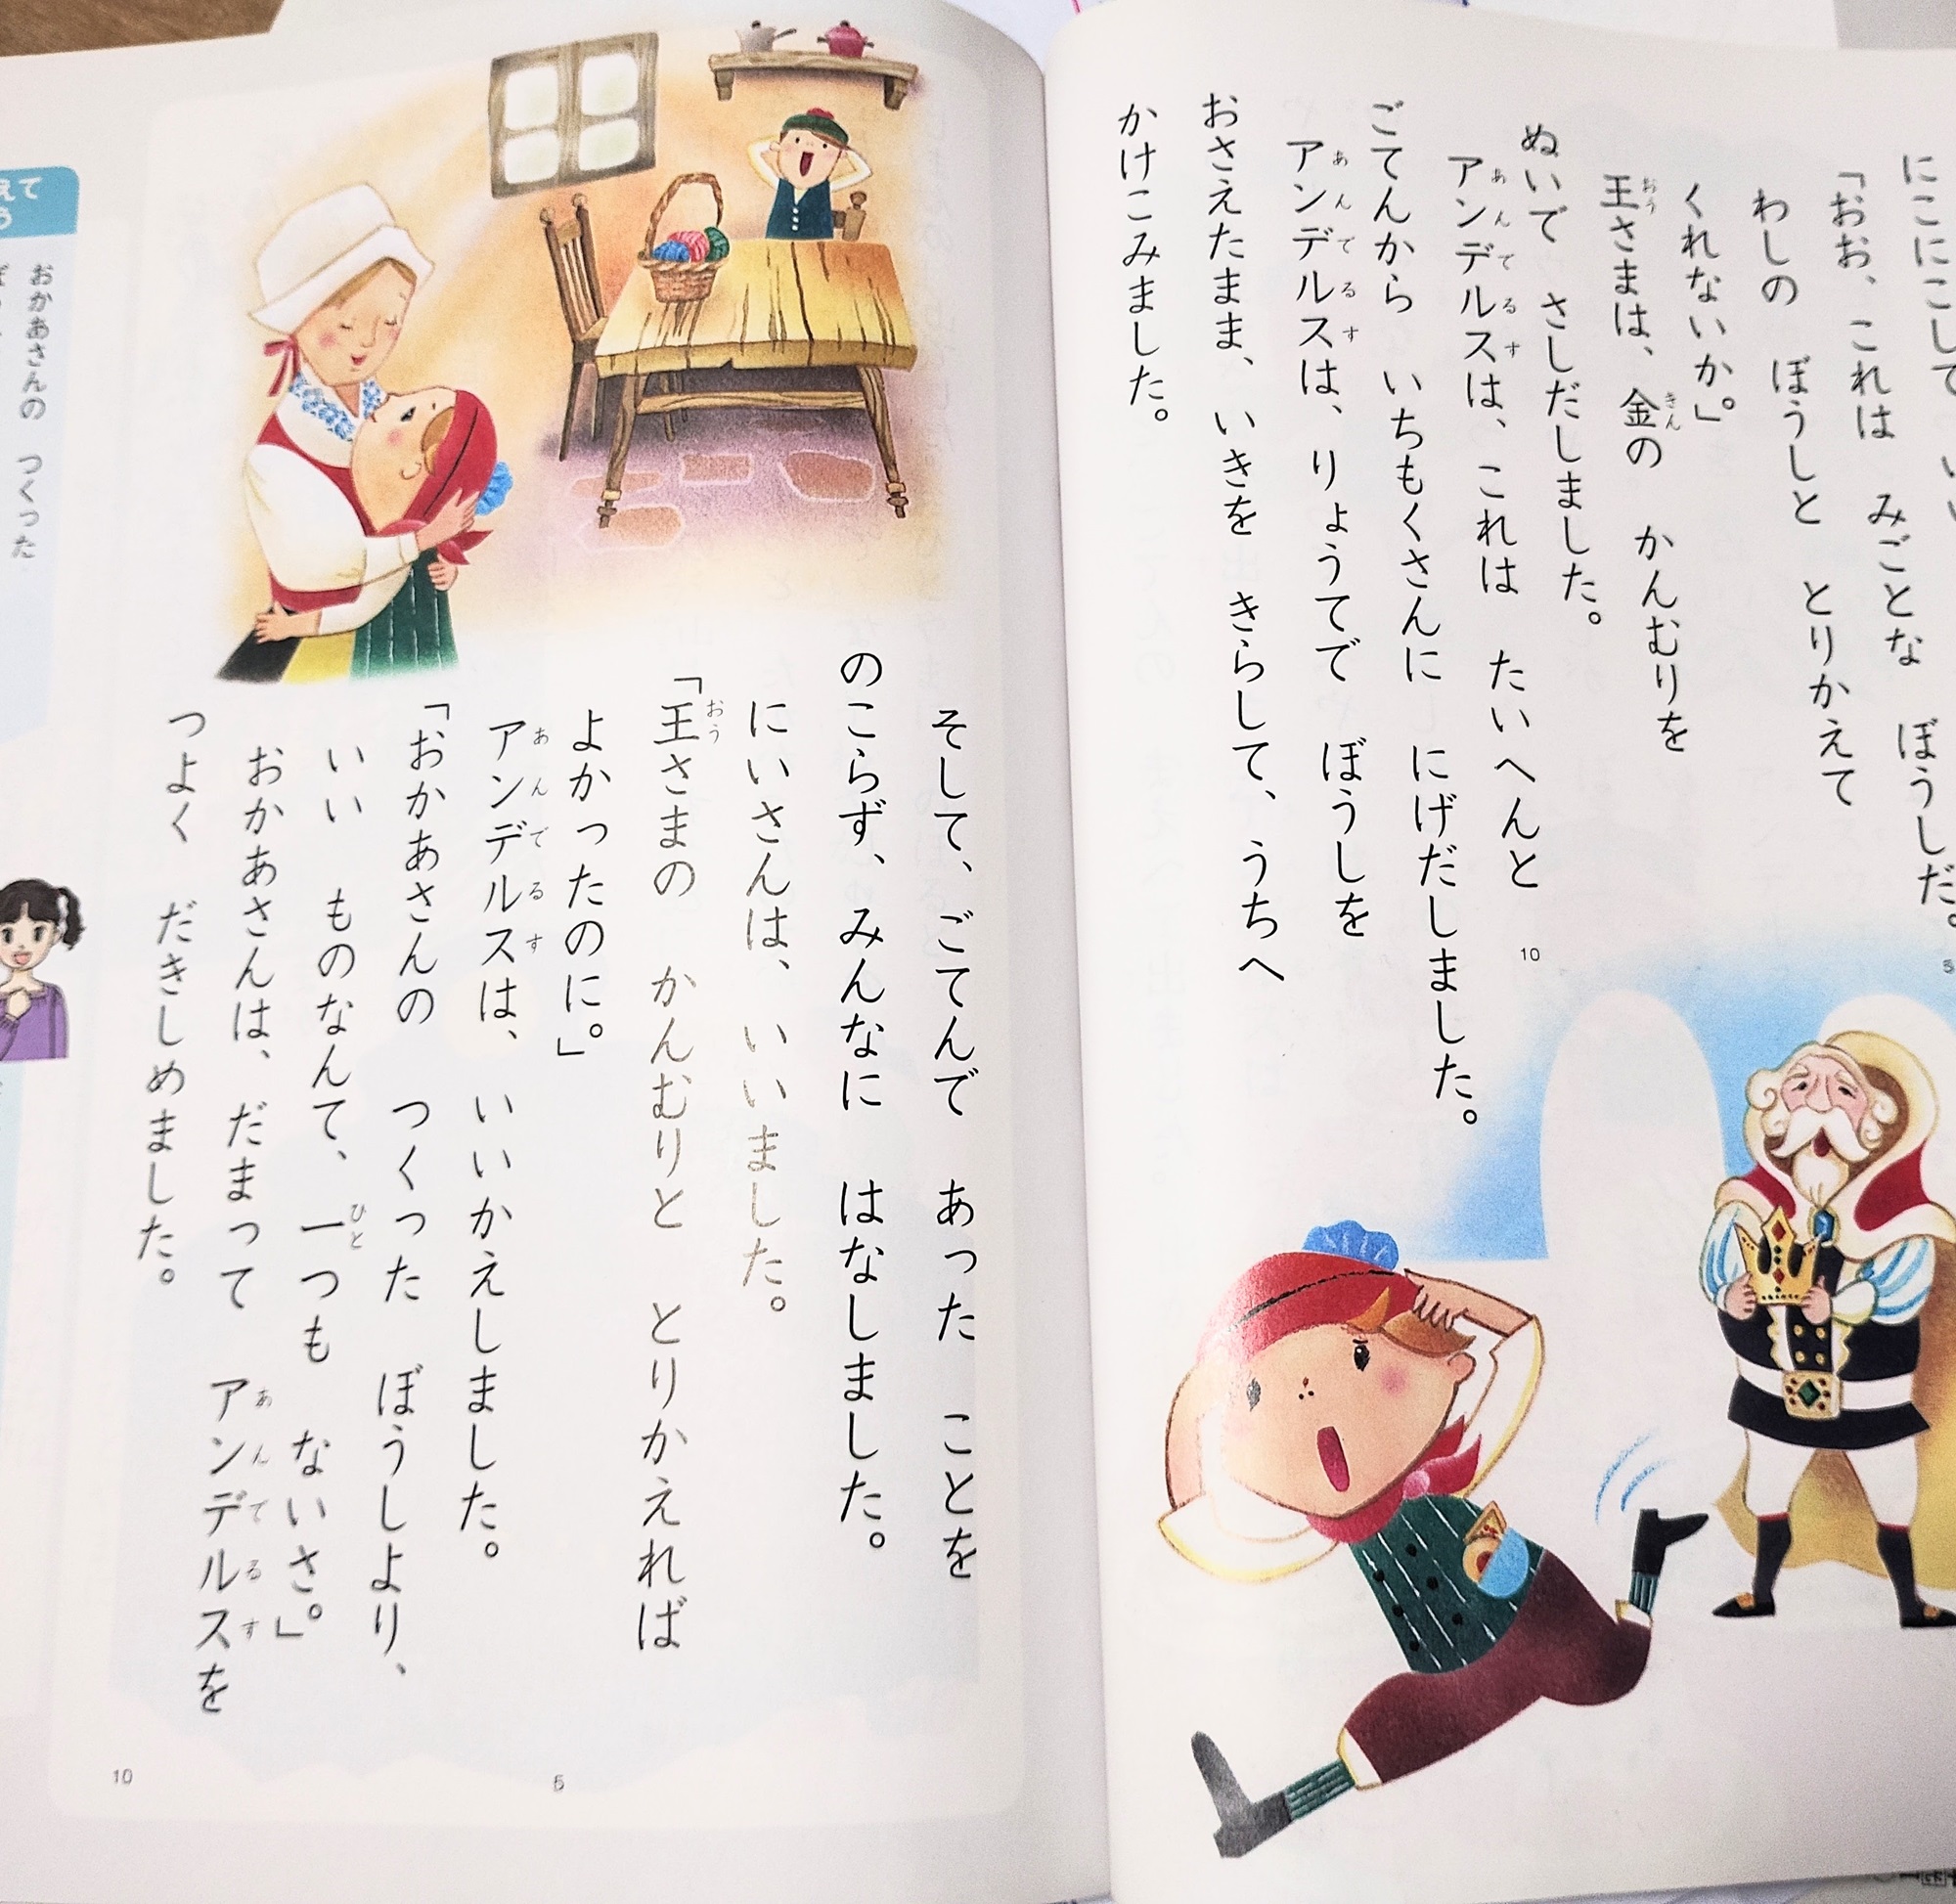 にこにこして
「おお、これは　みごとな　ぼうしだ。
わしの　ぼうしと　とりかえて
くれないか。」
王さまは、金の　かんむりを
ぬいで　さしだしました。
アンデルスは、これは　たいへんと
ごてんから　いちもくさんに　にげだしました。
アンデルスは、りょうてで　ぼうしを
おさえたまま、いきを　きらして、うちへ
かけこみました。
おう
きん
あんでるす
あんでるす
5
10
そして、ごてんで　あった　ことを
のこらず、みんなに　はなしました。
にいさんは、いいました。
「王さまの　かんむりと　とりかえれば
よかったのに。」
アンデルスは、いいかえしました。
「おかあさんの　つくった　ぼうしより、
いい　ものなんて、一つも　ないさ。」
おかあさんは、だまって　アンデルスを
つよく　だきしめました。
おう
あんでるす
ひと
あんでるす
5
10
えて
う
おかあさんの　つくった